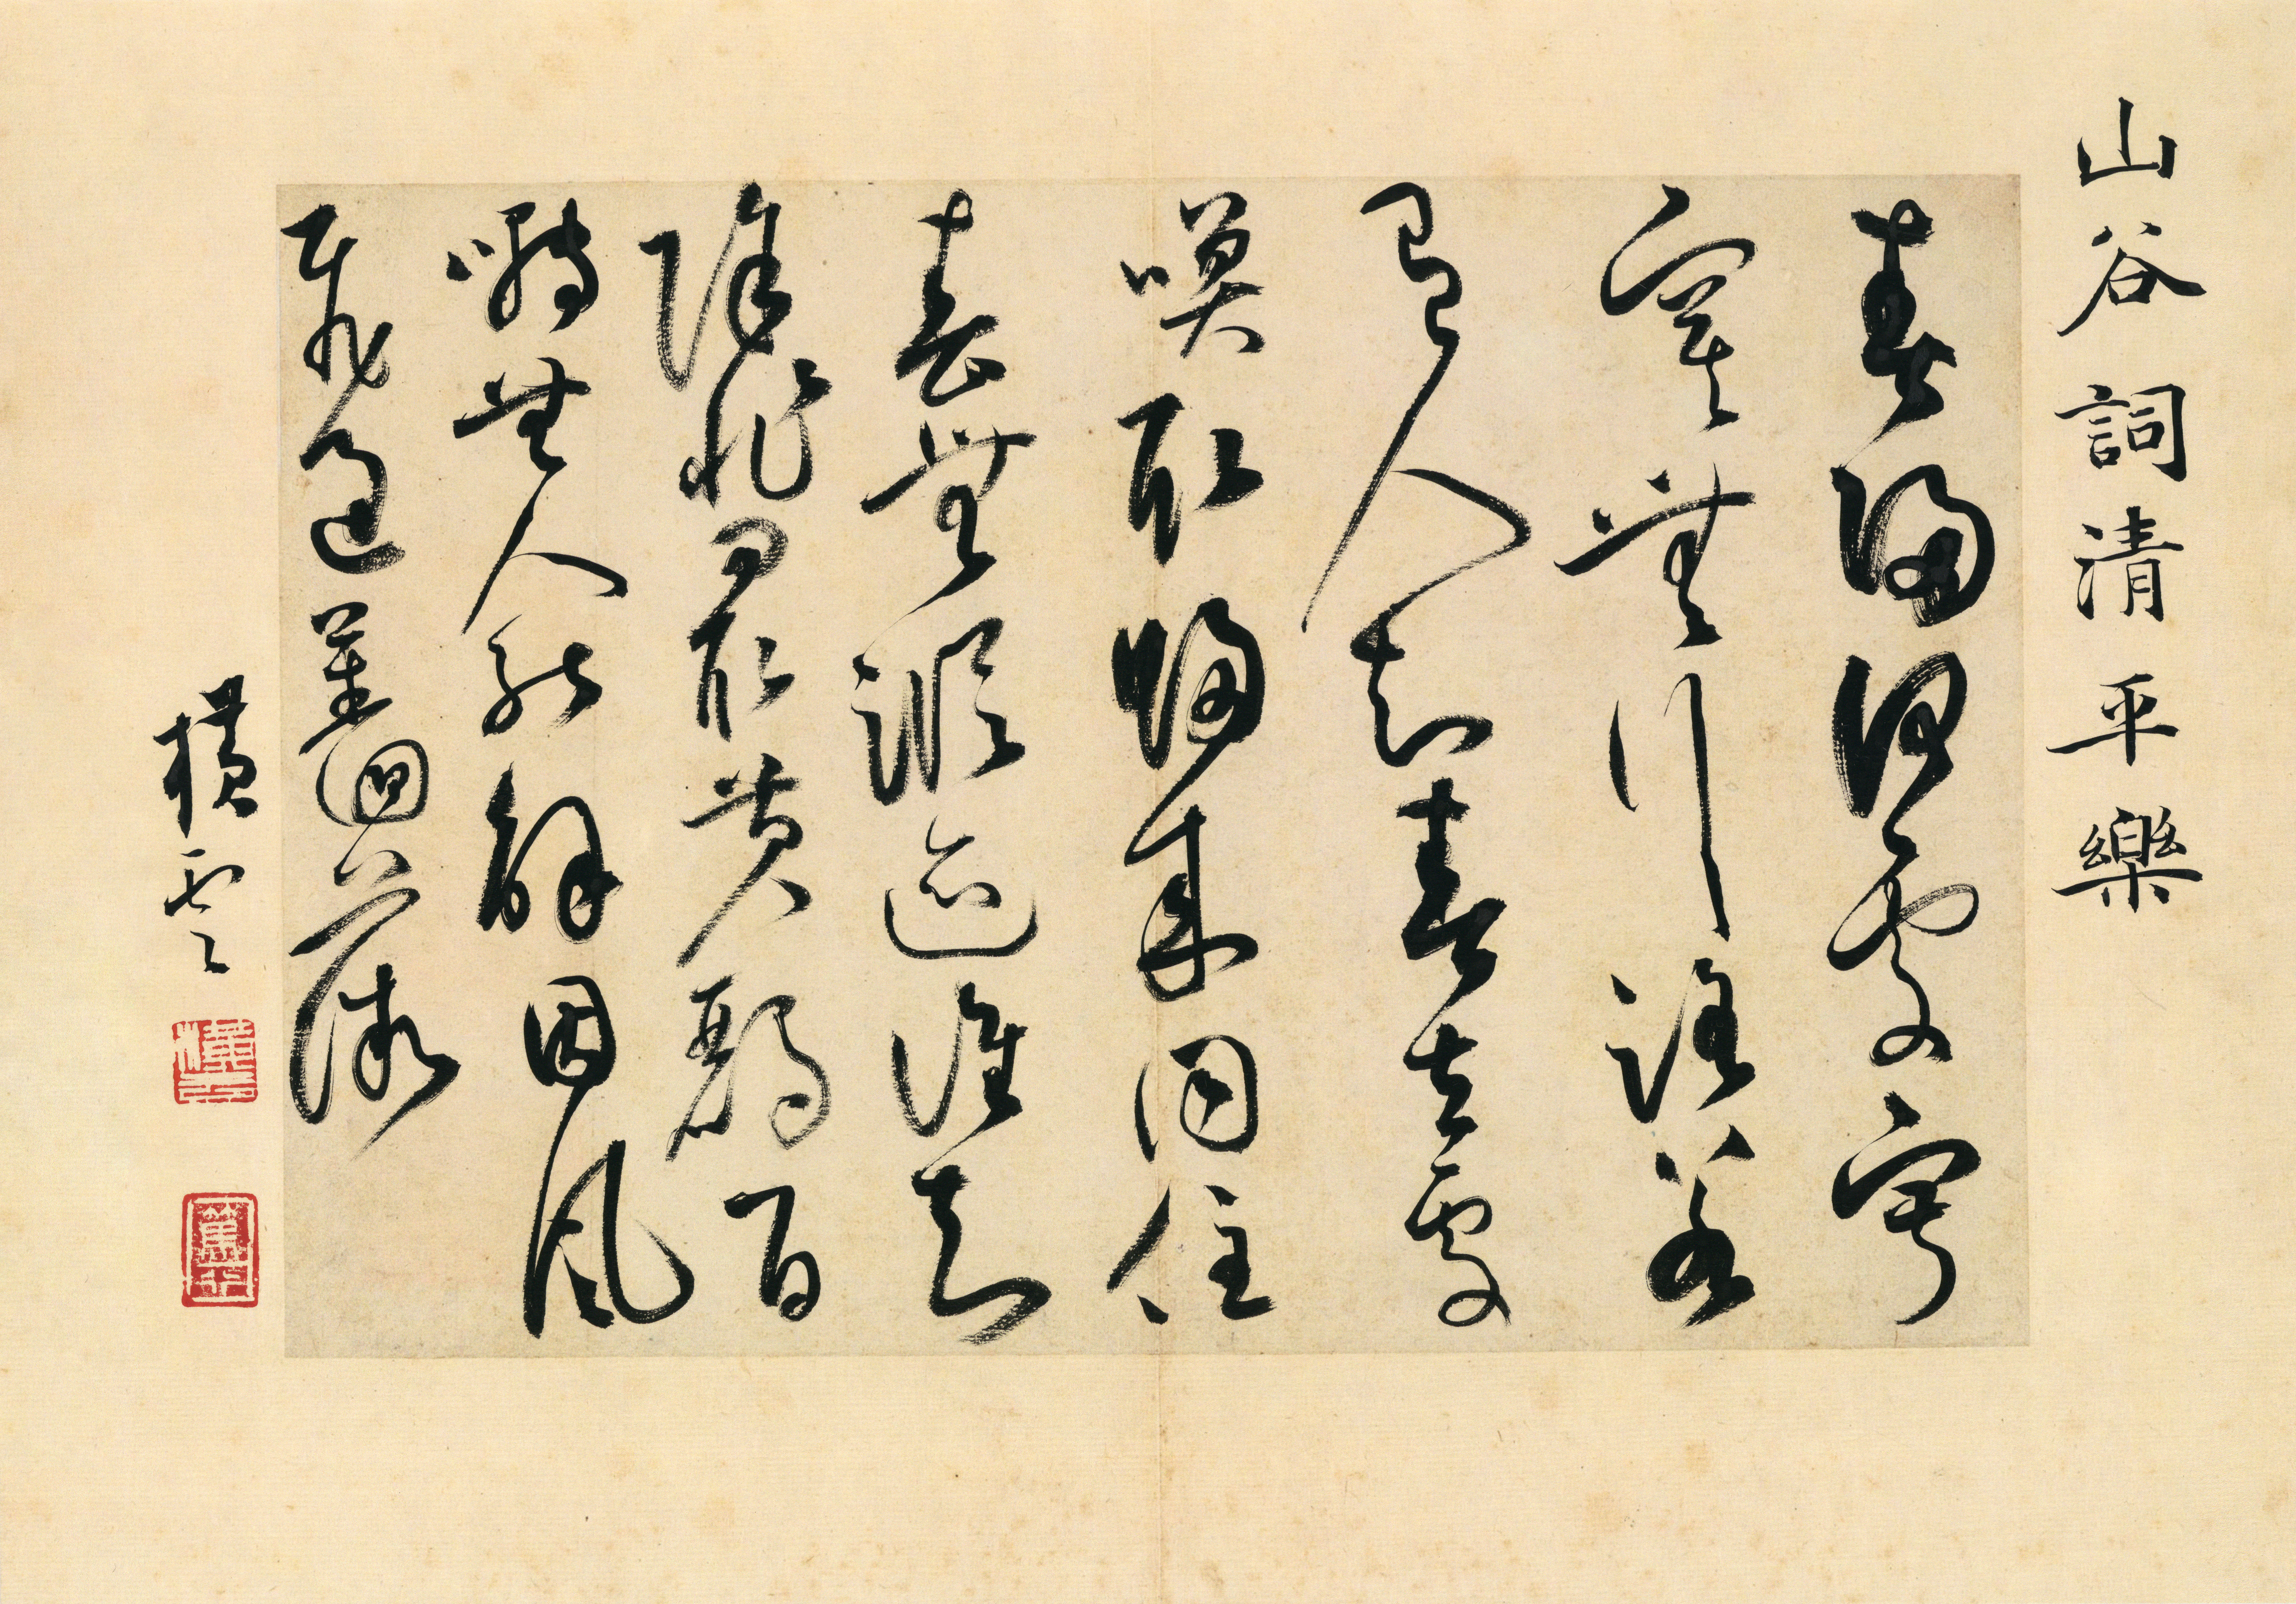 山谷詞清平樂
春歸何處寂
寞無行路若
有人知春去處
喚取歸來同住
春無蹤迹誰知
除非問取黃鸝百
囀無人能解因風
飛過薔薇
橫雲